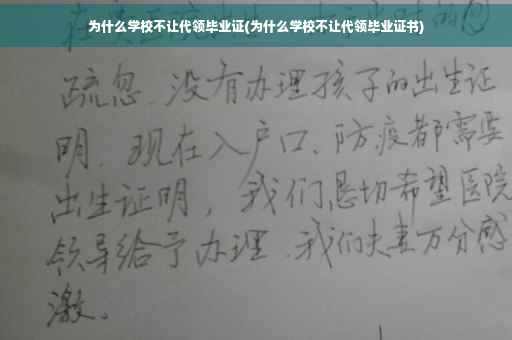 为什么学校不让代领毕业证(为什么学校不让代领毕业证书)
疏忽、没有办理孩子的出生证
明、现在入户口、防疫都需要
出生证明，我们恳切希望医院
领导给予办理、我们夫妻万分感
激。